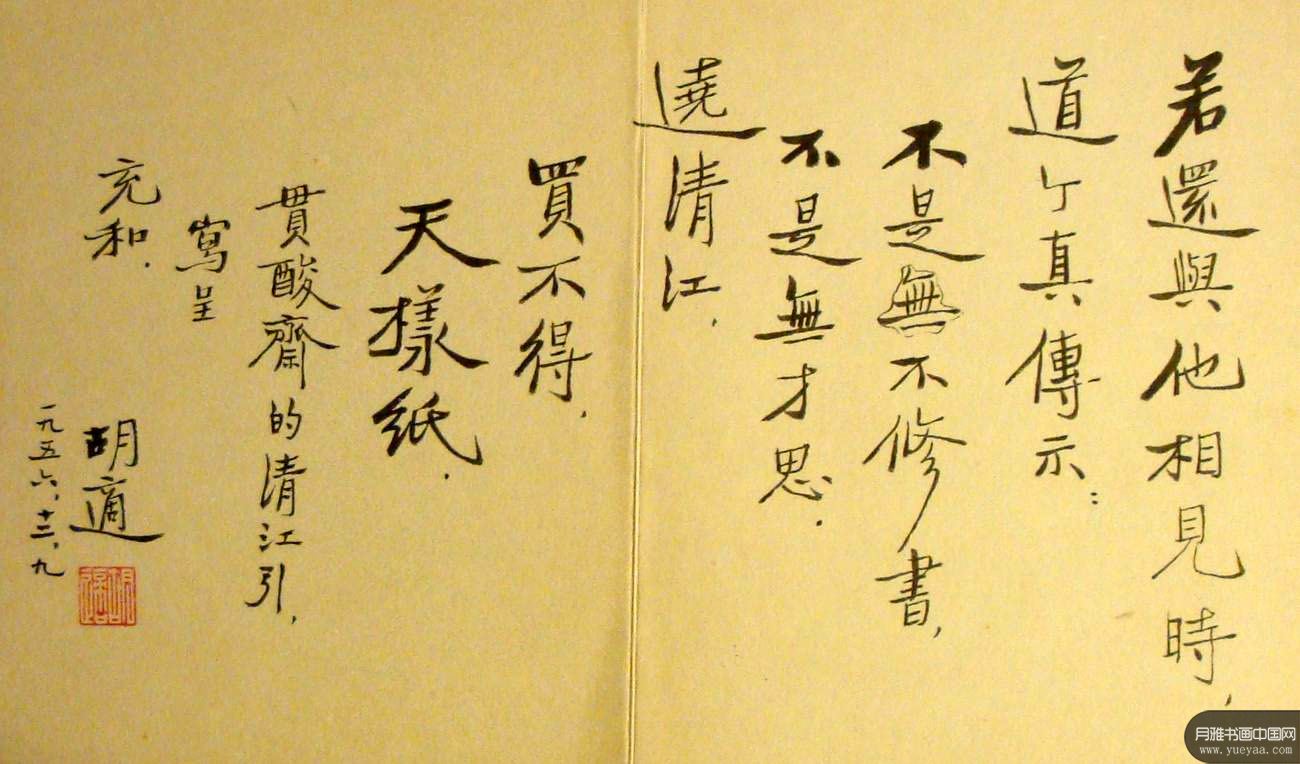 若還與他相見時，
道个真傳示：
不是無不修書，
不是無才思．
遶清江，
買不得，
天樣紙．
貫酸齋的清江引，
寫呈
充和．
胡適
一九五六，十二，九
胡適
月雅书画中国网
www.yueyaa.com